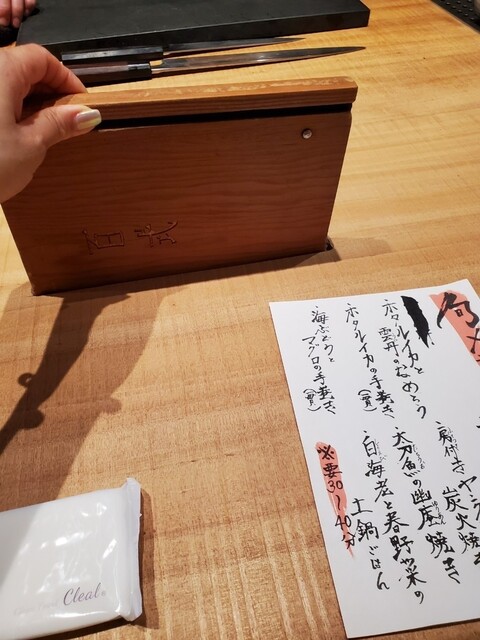 旬
・ホタルイカと
雲丹のなめろう
・ホタルイカの手巻き
・海ぶどうと
マグロの手巻き
炭火焼き
・太刀魚の幽庵焼き
・白海老と春野菜の
土鍋ごはん
必要30〜40分
Cleal